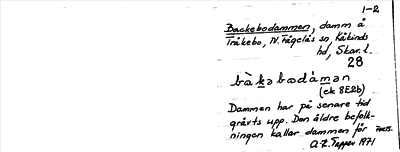 1-2
Backebodammen, damm å
Tråkebo, N. Fågelås sn, Kåkinds
hd, Skar. l.
28
bàkəbodámən
(ek 8E2b)
Dammen har på senare tid
grävts upp. Den äldre befolk-
ningen kallar dammen för
1971